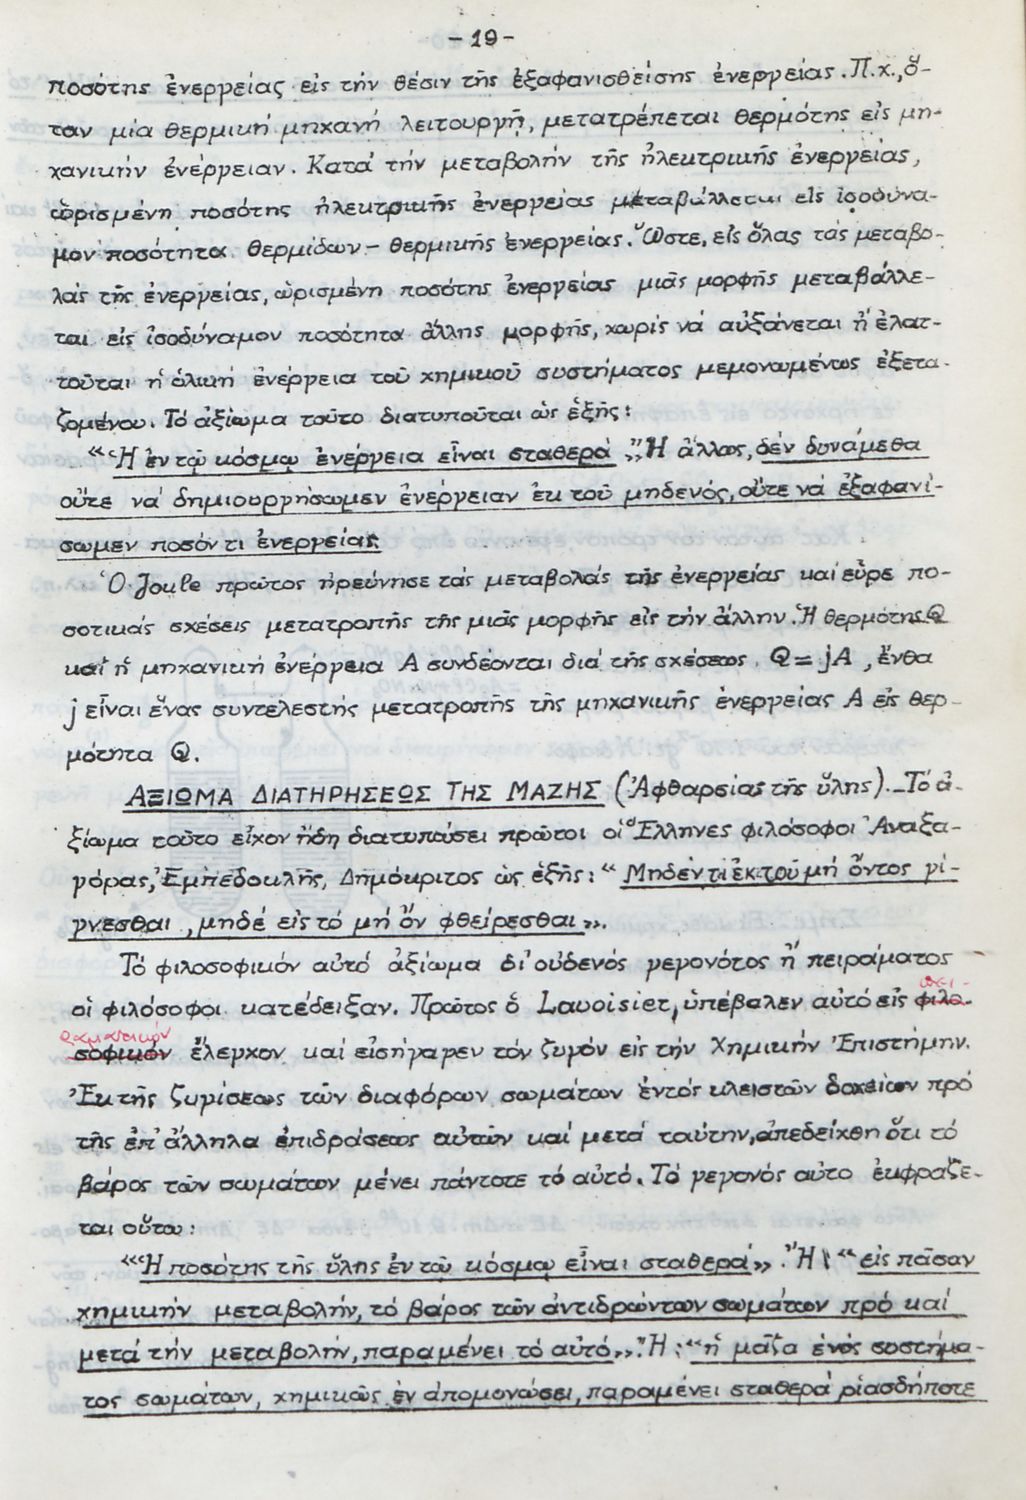 -19-
ποσότης ἐνεργείας εἰς τήν θέσιν τῆς ἐξαφανισθείσης ἐνεργείας. Π.χ., ὅ-
ταν μία θερμική μηχανή λειτουργῇ, μετατρέπεται θερμότης εἰς μη-
χανικήν ἐνέργειαν. Κατά τήν μεταβολήν τῆς ἠλεκτρικῆς ἐνεργείας,
ὡρισμένη ποσότης ἠλεκτρικῆς ἐνεργείας μεταβάλλεται εἰς ἰσοδύνα-
μον ποσότητα θερμίδων - θερμικῆς ἐνεργείας. Ὥστε, εἰς ὅλας τάς μεταβο-
λάς τῆς ἐνεργείας, ὡρισμένη ποσότης ἐνεργείας μιᾶς μορφῆς μεταβάλλε-
ται εἰς ἰσοδύναμον ποσότητα ἄλλης μορφῆς, χωρίς νά αὐξάνεται ἤ ἐλατ-
τοῦται ἡ ὁλική ἐνέργεια τοῦ χημικοῦ συστήματος μεμονωμένως ἐξετα-
ζομένου. Τό ἀξίωμα τοῦτο διατυποῦται ὡς ἑξῆς:
"Ἡ ἐν τῷ κόσμῳ ἐνέργεια εἶναι σταθερά". Ἤ ἄλλως, δέν δυνάμεθα
οὔτε νά δημιουργήσωμεν ἐνέργειαν ἐκ τοῦ μηδενός, οὔτε νά ἐξαφανί-
σωμεν ποσόν τι ἐνεργείας.
Ὁ Joule πρῶτος ἠρεύνησε τάς μεταβολάς τῆς ἐνεργείας καί εὗρε πο-
σοτικάς σχέσεις μετατροπῆς τῆς μιᾶς μορφῆς εἰς τήν ἄλλην. Ἡ θερμότης Q
καί ἡ μηχανική ἐνέργεια A συνδέονται διά τῆς σχέσεως Q = jA, ἔνθα
j εἶναι ἕνας συντελεστής μετατροπῆς τῆς μηχανικῆς ἐνεργείας A εἰς θερ-
μότητα Q.
ΑΞΙΩΜΑ ΔΙΑΤΗΡΗΣΕΩΣ ΤΗΣ ΜΑΖΗΣ (Ἀφθαρσίας τῆς ὕλης).-Τό ἀ-
ξίωμα τοῦτο εἶχον ἤδη διατυπώσει πρῶτοι οἱ Ἕλληνες φιλόσοφοι Ἀναξα-
γόρας, Ἐμπεδοκλῆς, Δημόκριτος ὡς ἑξῆς: "Μηδέν τι ἐκ τοῦ μή ὄντος γί-
γνεσθαι, μηδέ εἰς τό μή ὄν φθείρεσθαι".
Τό φιλοσοφικόν αὐτό ἀξίωμα δι' οὐδενός γεγονότος ἤ πειράματος
οἱ φιλόσοφοι κατέδειξαν. Πρῶτος ὁ Lavoisier, ὑπέβαλεν αὐτό εἰς φιλο-
σοφικόν ἔλεγχον καί εἰσήγαγεν τόν ζυγόν εἰς τήν Χημικήν Ἐπιστήμην.
Ἐκ τῆς ζυγίσεως τῶν διαφόρων σωμάτων ἐντός κλειστῶν δοχείων πρό
τῆς ἐπ' ἄλληλα ἐπιδράσεως αὐτῶν καί μετά ταύτην, ἀπεδείχθη ὅτι τό
βάρος τῶν σωμάτων μένει πάντοτε τό αὐτό. Τό γεγονός αὐτό ἐκφράζε-
ται οὕτω:
"Ἡ ποσότης τῆς ὕλης ἐν τῷ κόσμῳ εἶναι σταθερά". Ἤ "εἰς πᾶσαν
χημικήν μεταβολήν, τό βάρος τῶν ἀντιδρώντων σωμάτων πρό καί
μετά τήν μεταβολήν, παραμένει τό αὐτό". Ἤ: "ἡ μᾶζα ἑνός συστήμα-
τος σωμάτων, χημικῶς ἐν ἀπομονώσει, παραμένει σταθερά οἱασδήποτε